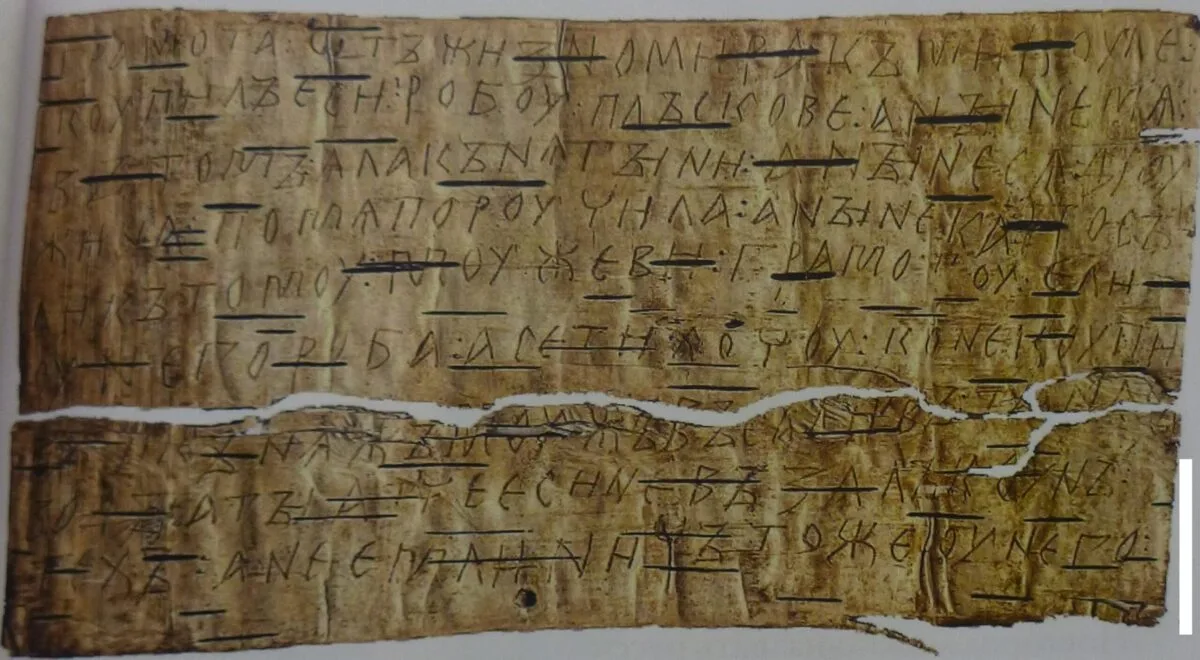 ГРАМОТА : ѠТЪ ЖИЗНОМИРА : КЪ МИКОУЛЕ :
КОУПИЛЪ ЕСИ : РОБОУ : ПЛЪСКОВЕ : А НЫНЕ МА :
ВЪ ТОМЪ : АЛА КЪНАГЫНИ : А НЫНЕ СА ДРОУ
ЖИНА : ПО МА ПОРОУЧИЛА : А НЫНЕ КА : ПОСЪ
ЛИ КЪ ТОМОУ : МОУЖЕВИ : ГРАМОТОУ : Е ЛИ
ОУ НЕГО РОБА : А СЕ ТИ ХОЧОУ : КОНЕ КОУПИ
ВЪ : И КЪНАЖЪ МОУЖЪ ВЪСАДИВЪ : ТА НА СЪ
ВОДЫ : А ТЫ АЧЕ ЕСИ НЕ ВЪЗАЛЪ КОУНЪ :
ТЕХЪ : А НЕ ЕМЛИ : НИЧЪТО ЖЕ ОУ НЕГО :